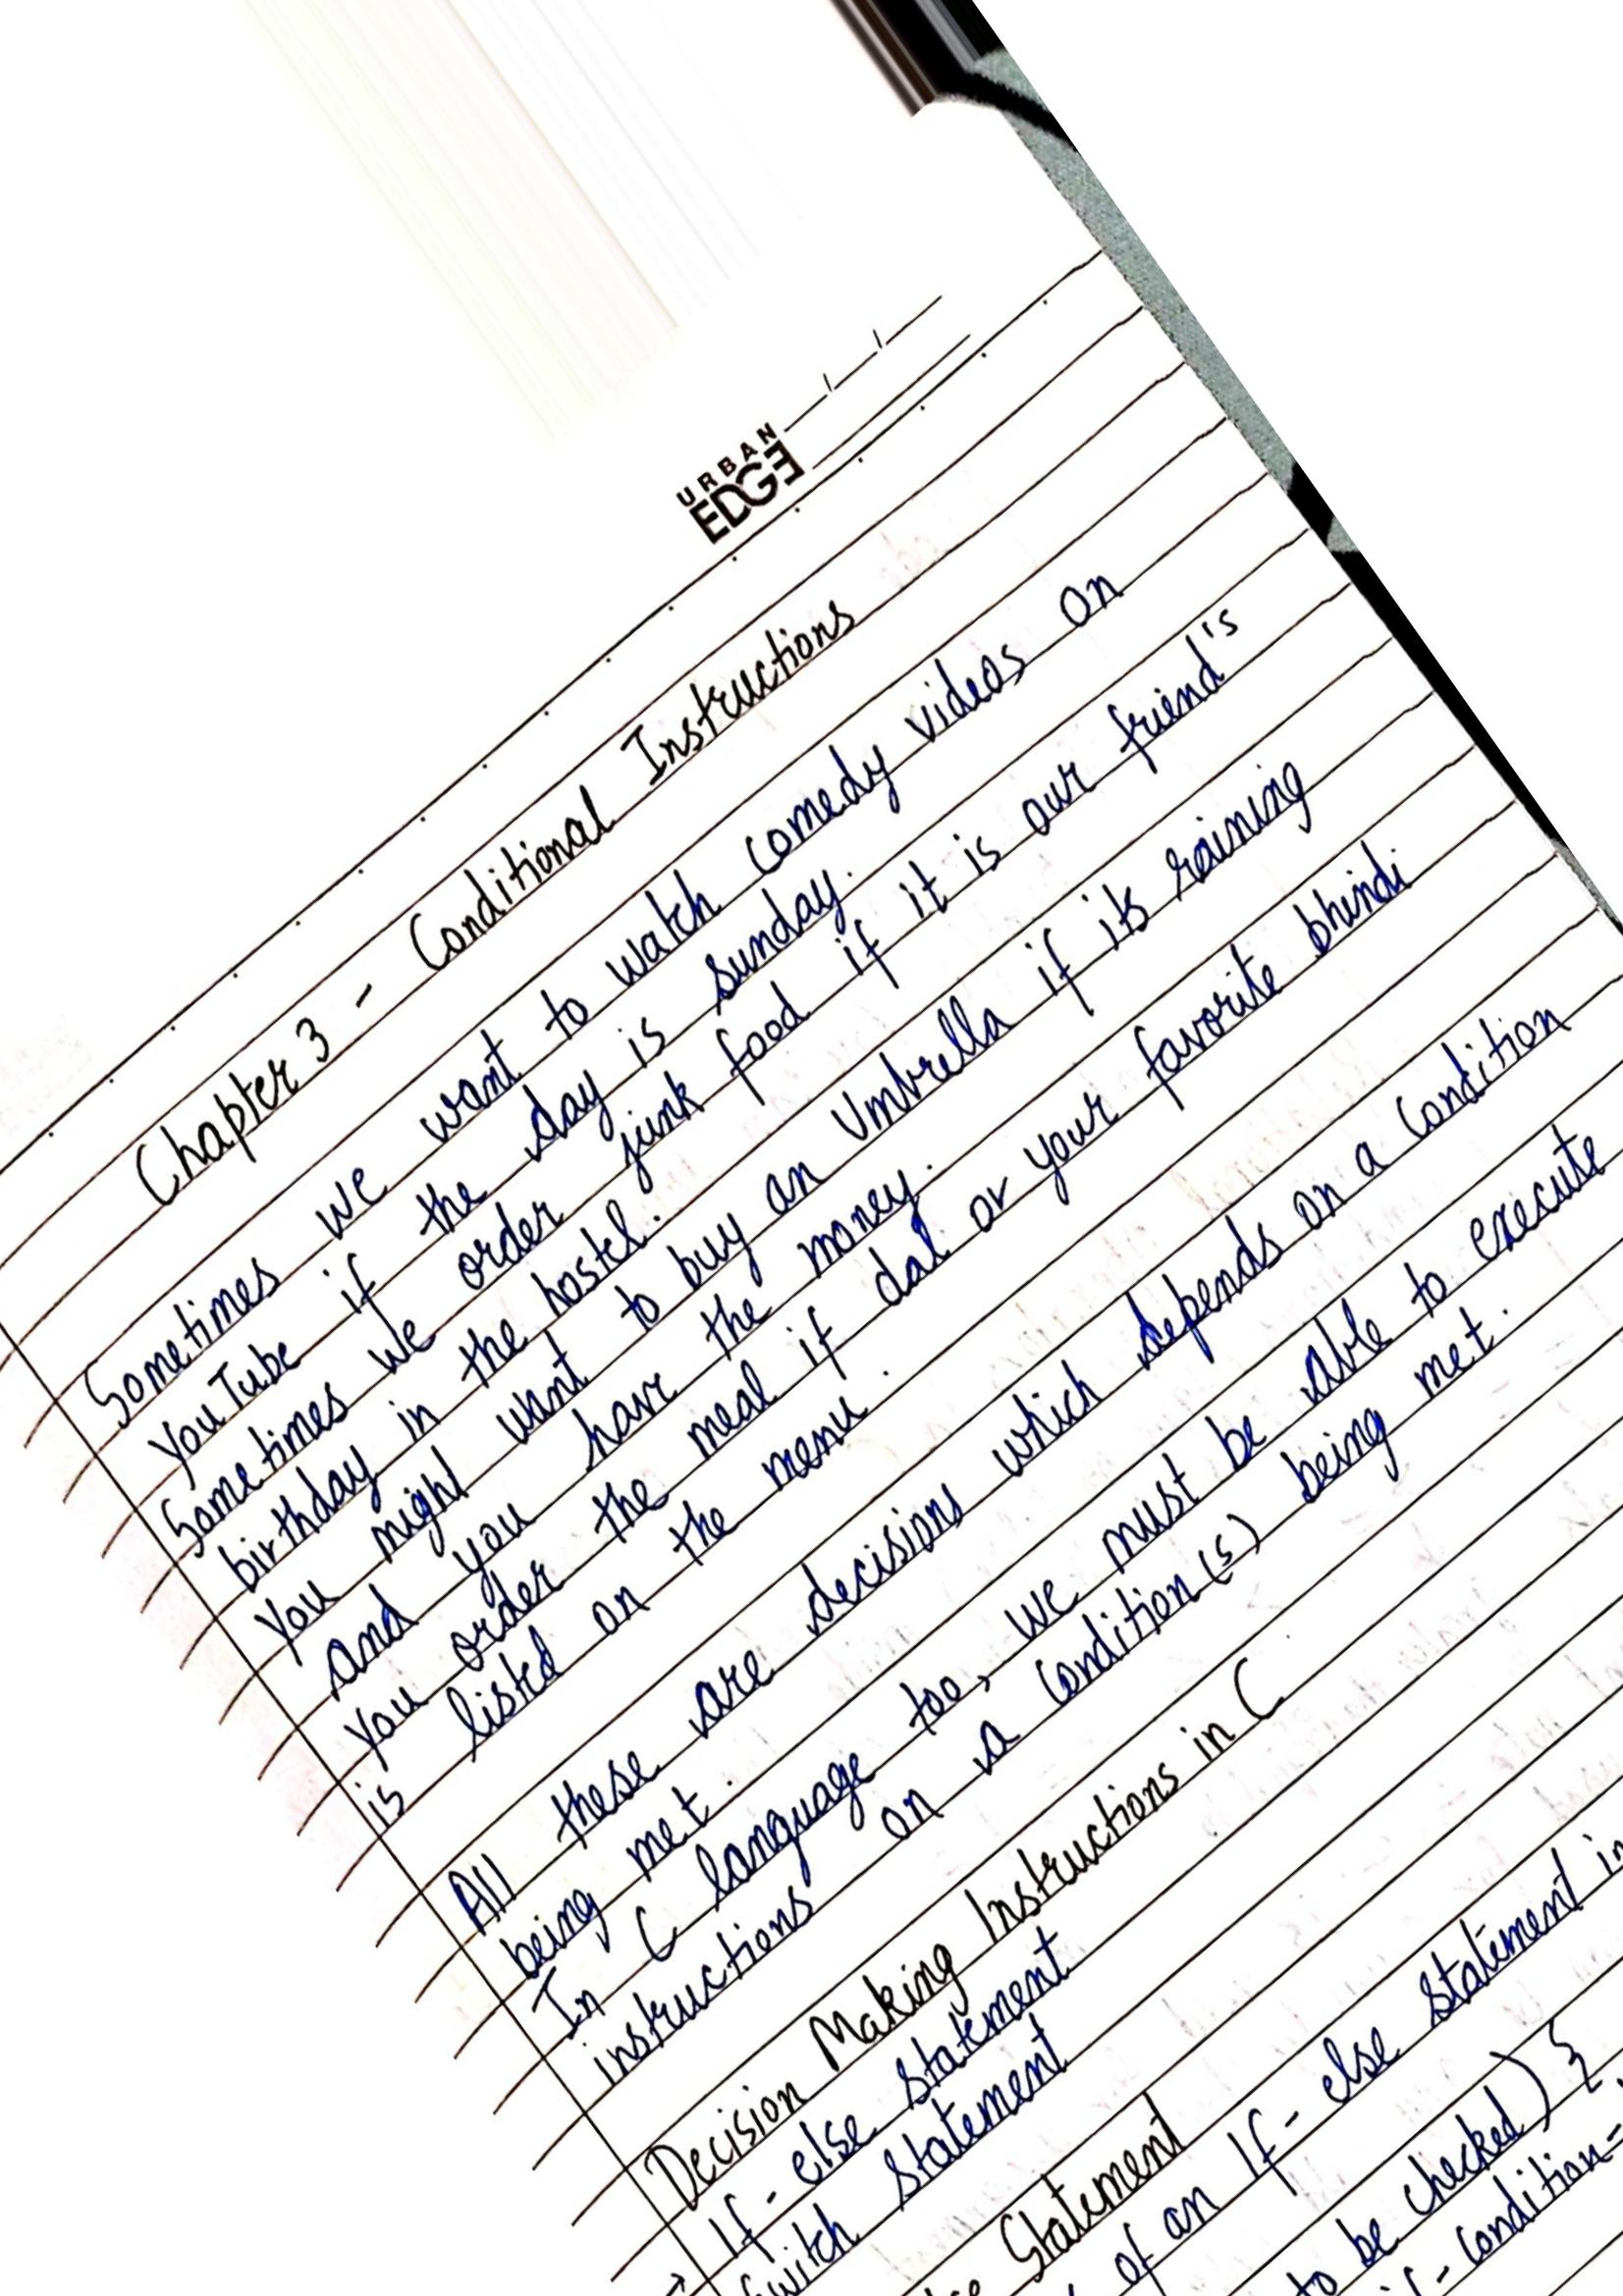 URBAN
EDGE
Chapter 3 - Conditional Instructions
Sometimes we want to watch comedy videos on
YouTube if the day is sunday.
Sometimes we order junk food if it is our friend's
birthday in the hostel.
You might want to buy an Umbrella if its raining
and you have the money.
You order the meal if dal or your favorite bhindi
is listed on the menu.
All these are decisions which depends on a condition
being met.
In C language too, we must be able to execute
instructions on a condition(s) being met.
Decision Making Instructions in C
If-else statement
Switch statement
Statement
of an If-else statement in
to be checked) {
if-condition-